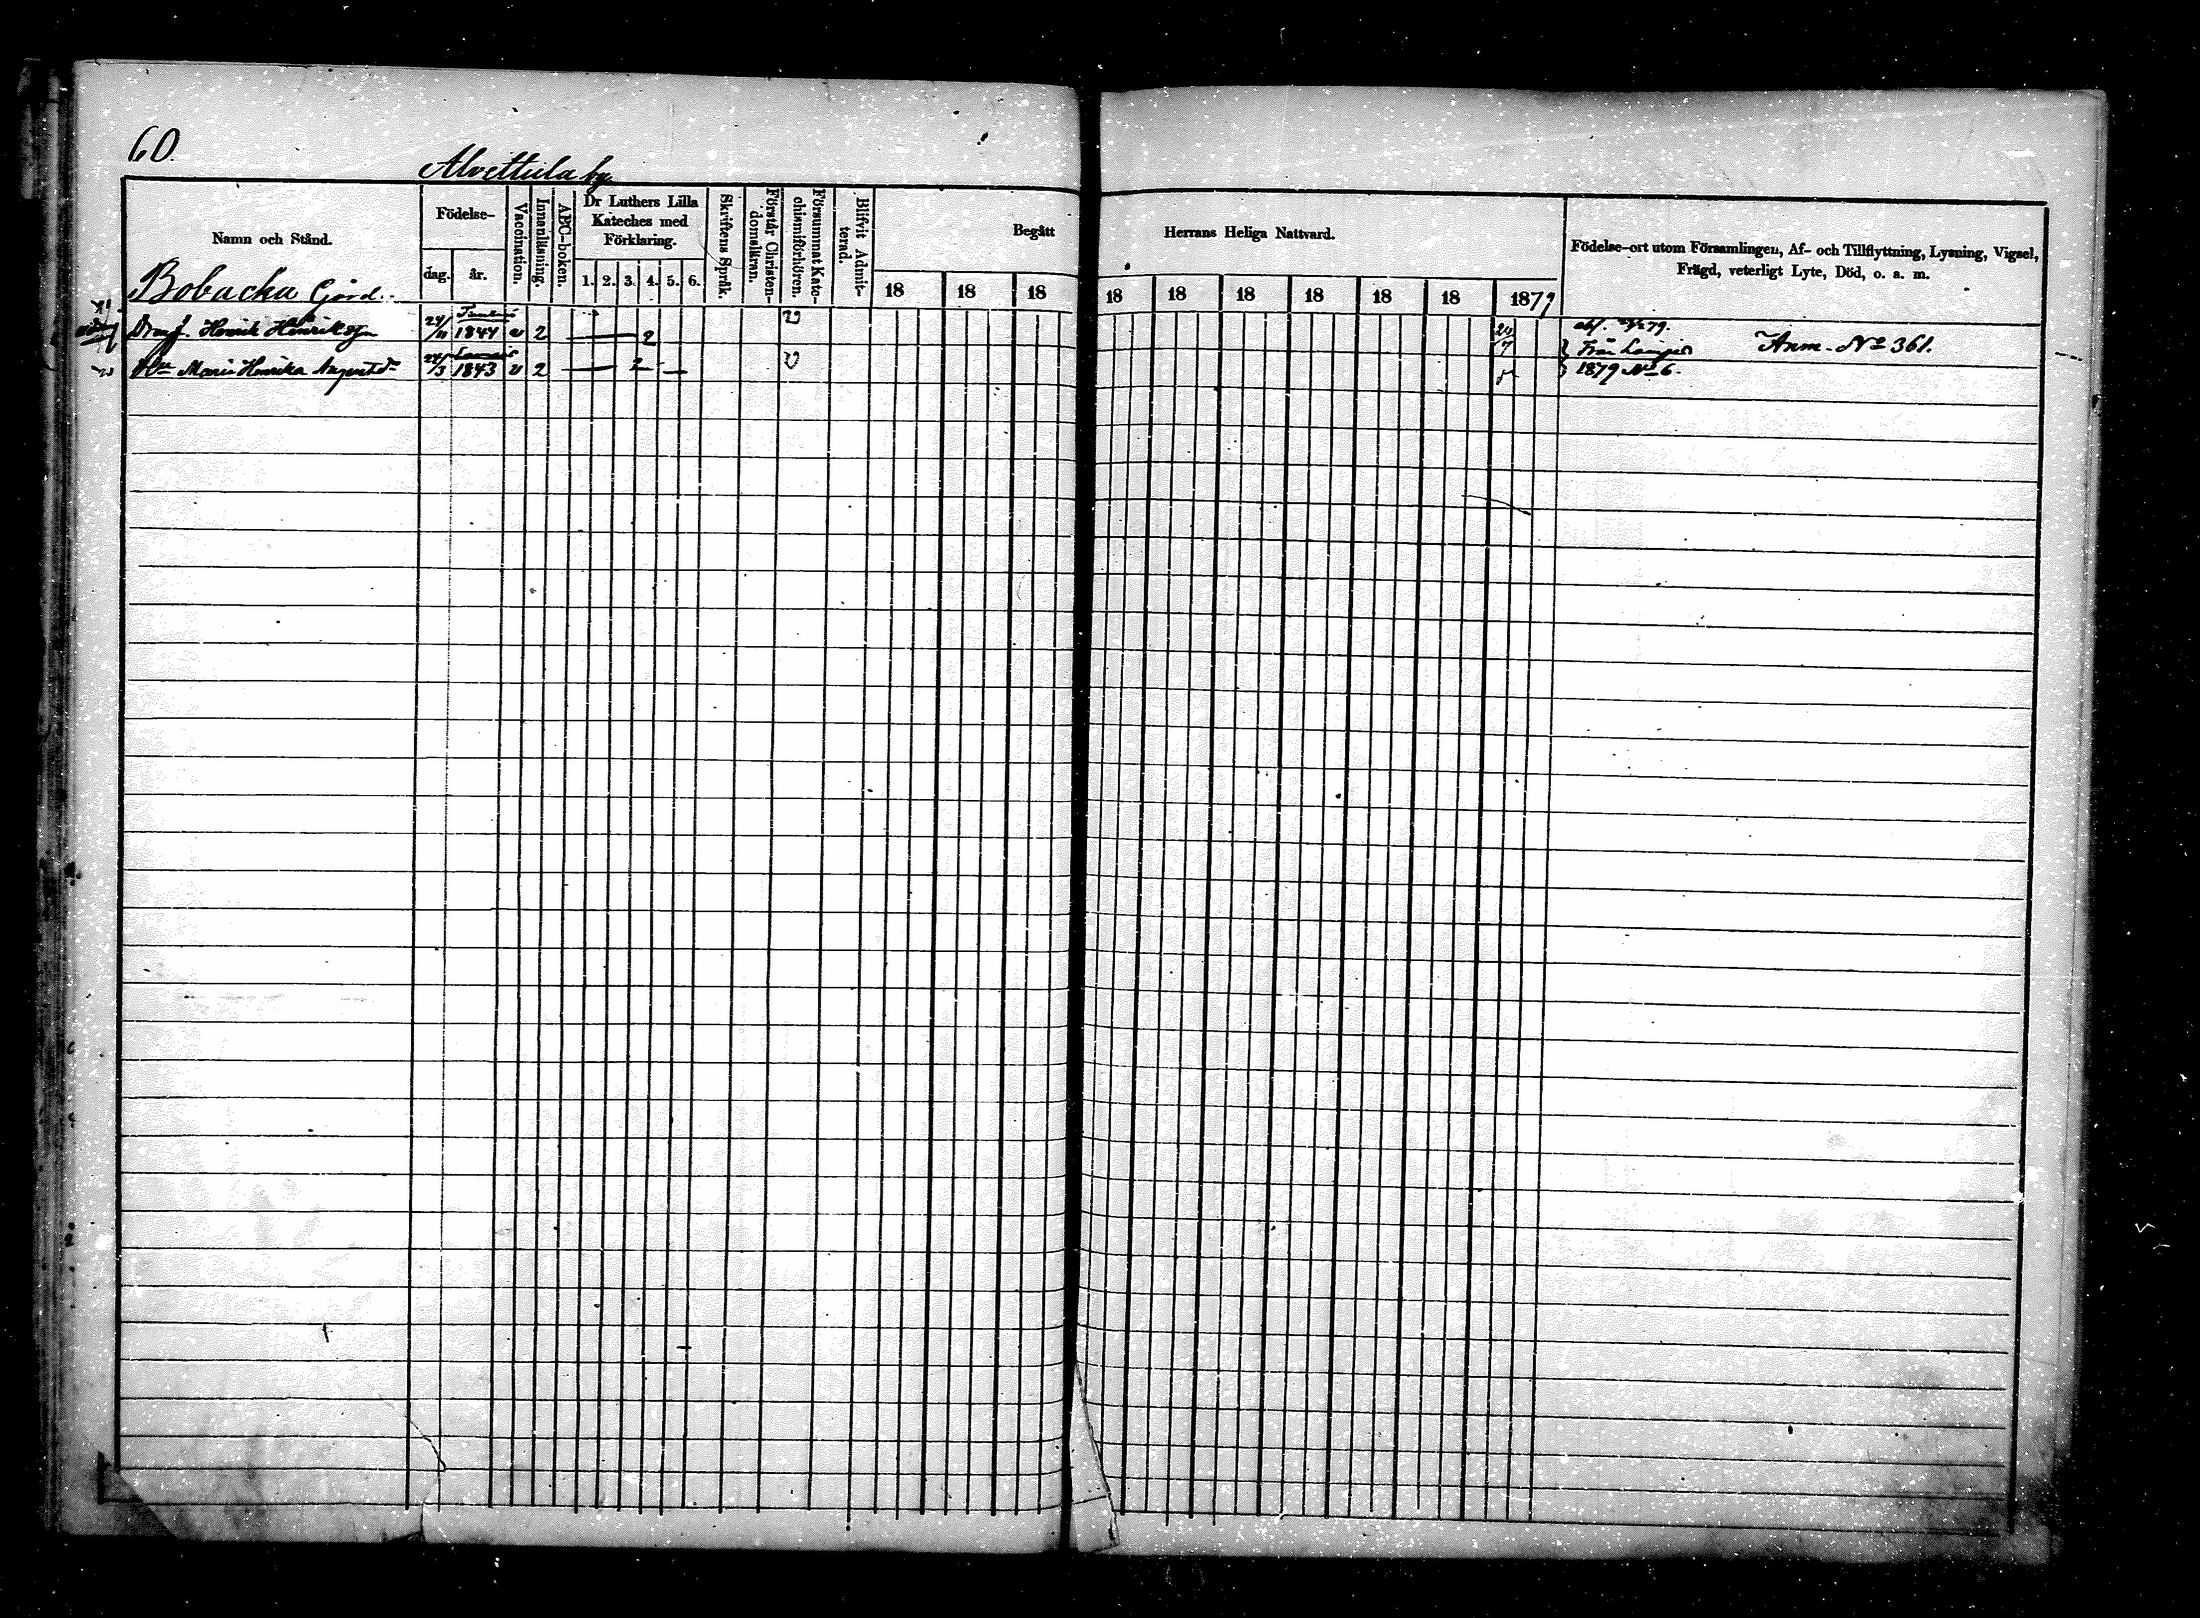 60.
Alvettula by
Namn och Stånd.
Födelse-
dag.
år.
Vaccination.
Innanläsning.
ABC-boken.
Dr Luthers Lilla
Kateches med
Förklaring.
1. 2. 3. 4. 5. 6.
Skriftens Språk.
Förstår Christen-
domsläran.
Försummat Kate-
chismiförhören.
Blifvit Admit-
terad.
Begått
Herrans Heliga Nattvard.
18 18 18 18 18 18 18 18 18 1879
Födelse-ort utom Församlingen, Af- och Tillflyttning, Lysning, Vigsel,
Frägd, veterligt Lyte, Död, o. a. m.
Bobacka Gård.
Henrik Henriksson 24/11 1841 v 2 2
Maria Henrika August dr 24/3 1843 v 2 2
79.
Från Lampis Anm. No 361.
1879 No 6.